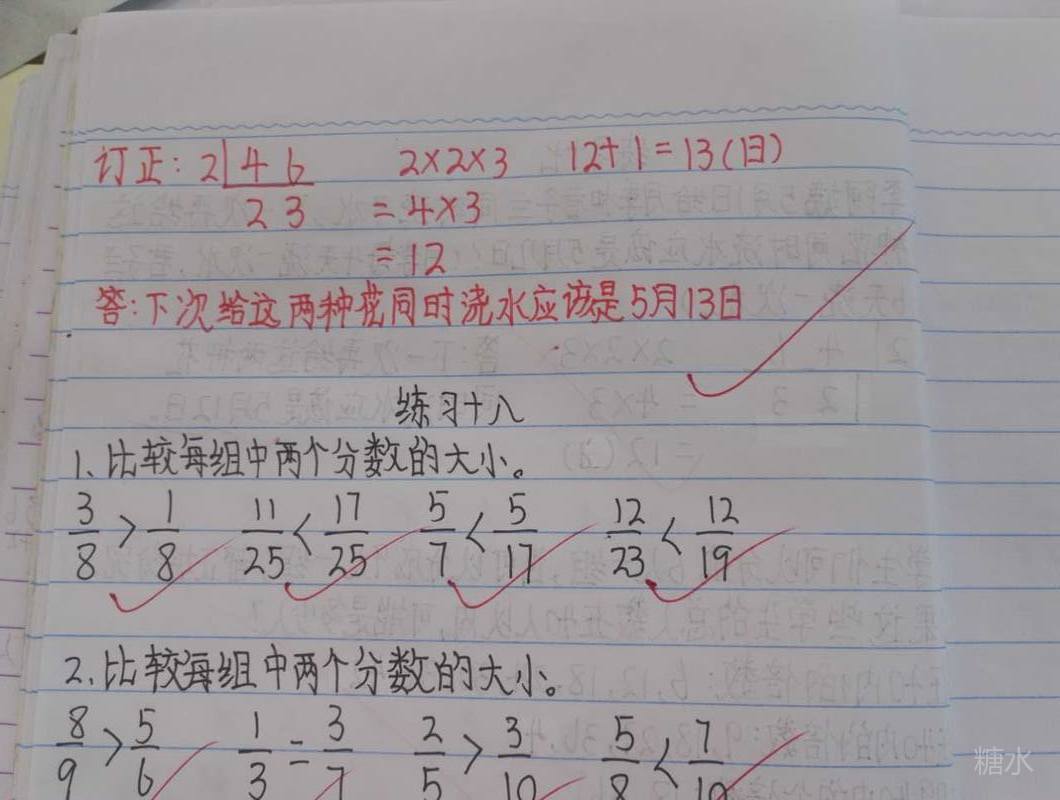 订正: 2|4 6 2×2×3 12+1=13(日)
2 3 =4×3
=12
答:下次给这两种花同时浇水应该是5月13日
练习十八
1、比较每组中两个分数的大小。
3/8 > 1/8 11/25 < 17/25 5/7 < 5/17 12/23 < 12/19
2、比较每组中两个分数的大小。
8/9 > 5/6 1/3 = 3/ 2/5 > 3/10 5/8 < 7/10
糖水